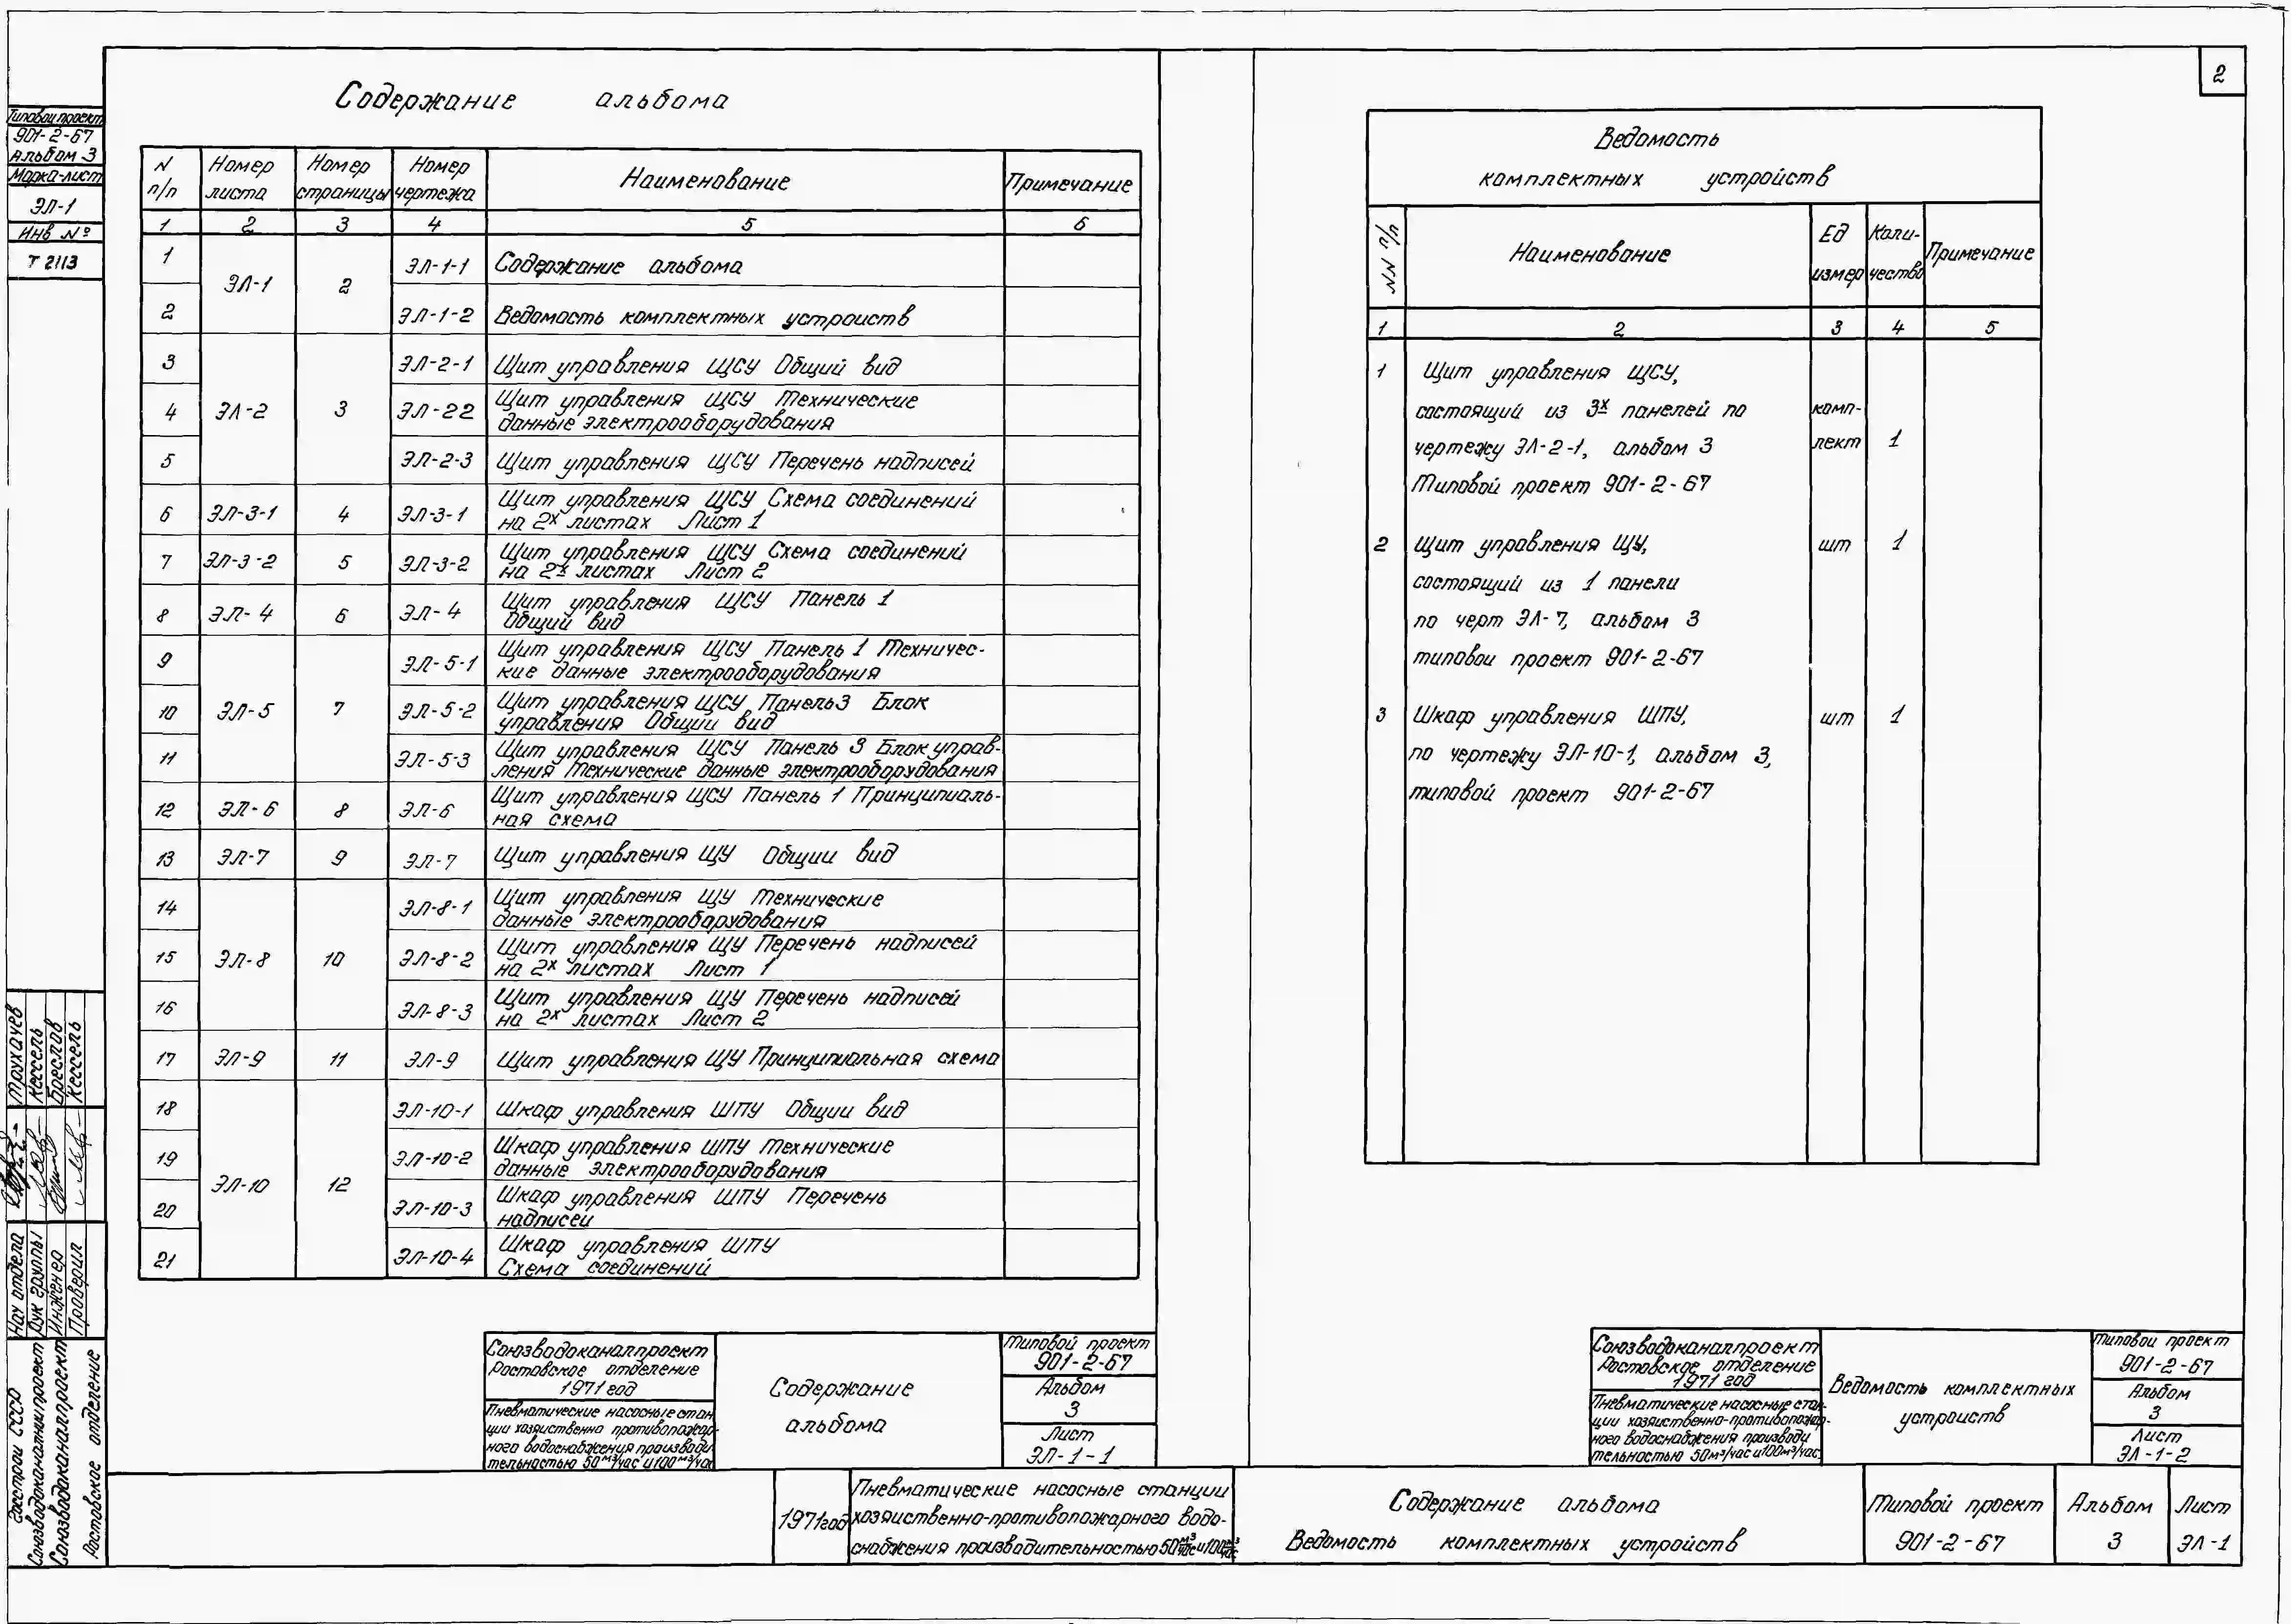 2
Типовой проект
901-2-67
Альбом 3
Марка-лист
ЭЛ-1
Инв №
Т 2113
Содержание альбома
N п/п Номер листа Номер страницы Номер чертежа Наименование Примечание
1 2 3 4 5 6
1 ЭЛ-1 2 ЭЛ-1-1 Содержание альбома
2 ЭЛ-1-2 Ведомость комплектных устроиств
3 ЭЛ-2-1 Щит управления ЩСУ Общий вид
4 ЭЛ-2 3 ЭЛ-22 Щит управления ЩСУ Технические
данные электрооборудования
5 ЭЛ-2-3 Щит управления ЩСУ Перечень надписей
6 ЭЛ-3-1 4 ЭЛ-3-1 Щит управления ЩСУ Схема соединений
на 2х листах Лист 1
7 ЭЛ-3-2 5 ЭЛ-3-2 Щит управления ЩСУ Схема соединений
на 2х листах Лист 2
8 ЭЛ-4 6 ЭЛ-4 Щит управления ЩСУ Панель 1
Общий вид
9 ЭЛ-5-1 Щит управления ЩСУ Панель 1 Техничес-
кие данные электрооборудования
10 ЭЛ-5 7 ЭЛ-5-2 Щит управления ЩСУ Панель3 Блок
управления Общии вид
11 ЭЛ-5-3 Щит управления ЩСУ Панель 3 Блок управ-
ления Технические данные электрооборудования
12 ЭЛ-6 8 ЭЛ-6 Щит управления ЩСУ Панель 1 Принципиаль-
ная схема
13 ЭЛ-7 9 ЭЛ-7 Щит управления ЩУ Общии вид
14 ЭЛ-8-1 Щит управления ЩУ Технические
данные электрооборудования
15 ЭЛ-8 10 ЭЛ-8-2 Щит управления ЩУ Перечень надписей
на 2х листах Лист 1
16 ЭЛ-8-3 Щит управления ЩУ Перечень надписей
на 2х листах Лист 2
17 ЭЛ-9 11 ЭЛ-9 Щит управления ЩУ Принципиальная схема
18 ЭЛ-10-1 Шкаф управления ШПУ Общии вид
19 ЭЛ-10-2 Шкаф управления ШПУ Технические
данные электрооборудования
ЭЛ-10 12
20 ЭЛ-10-3 Шкаф управления ШПУ Перечень
надписеи
21 ЭЛ-10-4 Шкаф управления ШПУ
Схема соединений
Ведомость
комплектных устройств
NN п/п Наименование Ед измер Коли-чество Примечание
1 2 3 4 5
1 Щит управления ЩСУ,
состоящий из 3х панелей по комп-
чертежу ЭЛ-2-1, альбом 3 лект 1
Типовой проект 901-2-67
2 Щит управления ЩУ, шт 1
состоящий из 1 панели
по черт ЭЛ-7, альбом 3
типовои проект 901-2-67
3 Шкаф управления ШПУ, шт 1
по чертежу ЭЛ-10-1, альбом 3,
типовой проект 901-2-67
Трухачев
Кессель
Бреслав
Кессель
Нач отдела
Рук группы
Инженер
Проверил
Госстрои СССР
Союзводоканалниипроект
Союзводоканалпроект
Ростовское отделение
Союзводоканалпроект
Ростовское отделение
1971 год
Пневматические насосные стан
ции хозяиственно противопожар-
ного водоснабжения производи
тельностью 50 м³/час и 100 м³/час
Содержание
альбома
Типовой проект
901-2-67
Альбом
3
Лист
ЭЛ-1-1
Союзводоканалпроект
Ростовское отделение
1971 год
Пневматические насосные стан-
ции хозяиственно-противопожар-
ного водоснабжения производи
тельностью 50м³/час и 100м³/час
Ведомость комплектных
устроиств
Типовои проект
901-2-67
Альбом
3
Лист
ЭЛ-1-2
1971год
Пневматические насосные станции
хозяиственно-противопожарного водо-
снабжения производительностью 50 м³/час и 100 м³/час
Содержание альбома
Ведомость комплектных устройств
Типовой проект
901-2-67
Альбом
3
Лист
ЭЛ-1